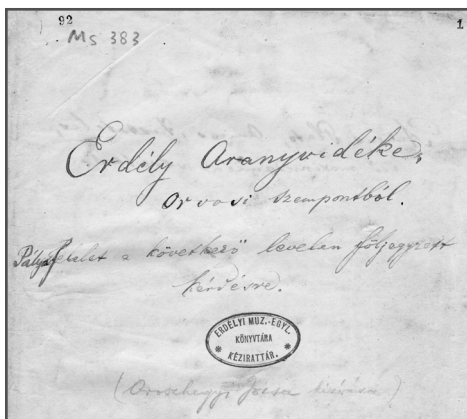 92
1
Ms 383
Erdély Aranyvidéke,
orvosi szempontból.
Pályafelelet a következő levelen följegyzett
kérdésre.
ERDÉLYI MUZ.-EGYL.
KÖNYVTÁRA
KÉZIRATTÁR.